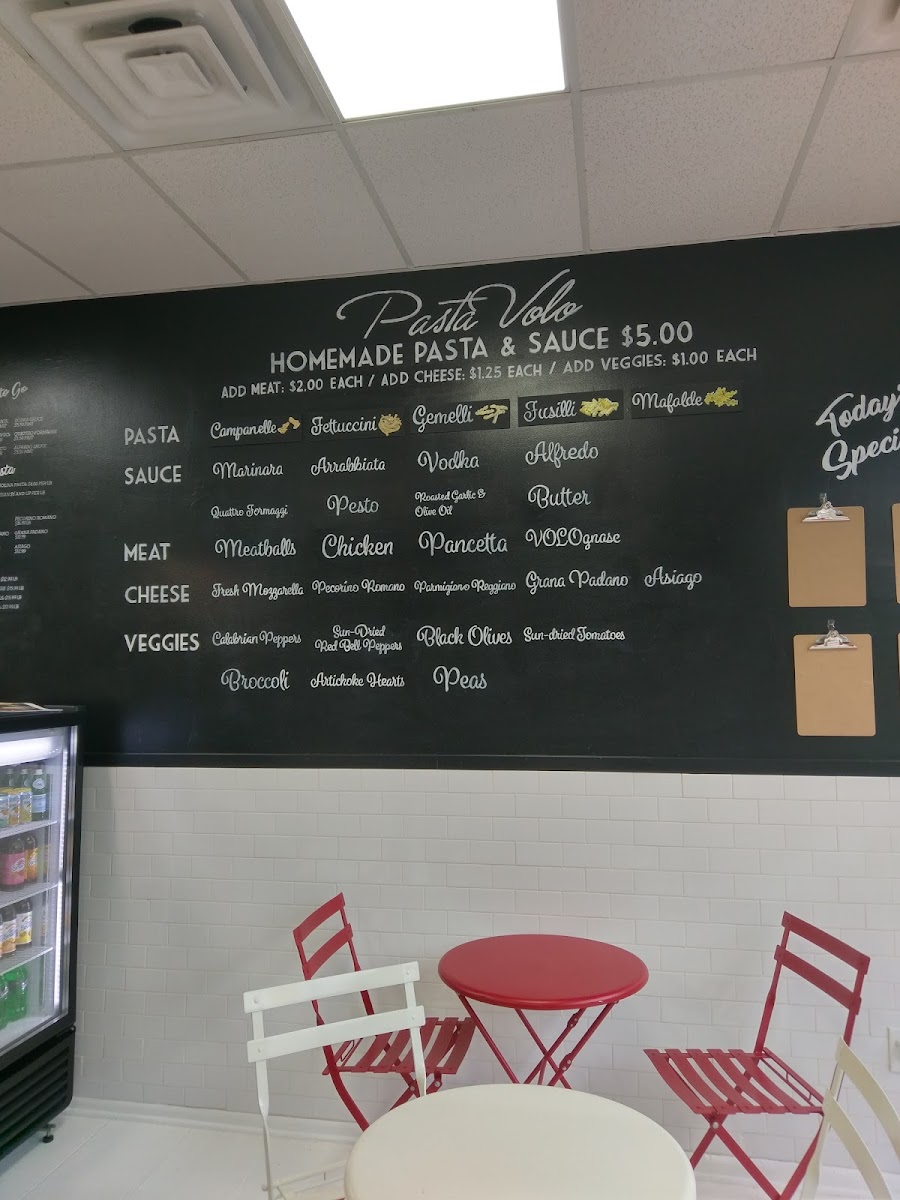 Pasta Volo
HOMEMADE PASTA & SAUCE $5.00
ADD MEAT: $2.00 EACH / ADD CHEESE: $1.25 EACH / ADD VEGGIES: $1.00 EACH
PASTA Campanelle Fettuccini Gemelli Fusilli Mafalde
SAUCE Marinara Arrabbiata Vodka Alfredo
Quattro Formaggi Pesto Roasted Garlic & Butter
Olive Oil
MEAT Meatballs Chicken Pancetta VOLOgnase
CHEESE Fresh Mozzarella Pecorino Romano Parmigiano Reggiano Grana Padano Asiago
VEGGIES Calabrian Peppers Sun-Dried Black Olives Sun-dried Tomatoes
Red Bell Peppers
Broccoli Artichoke Hearts Peas
to Go
PECORINO ROMANO
GRANA PADANO
ASIAGO
Today's
Speci